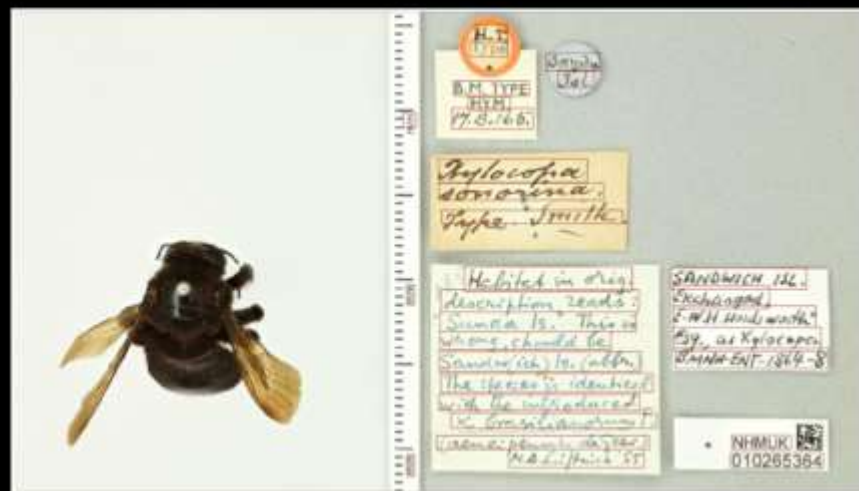 H.T.
Type
B.M. TYPE
HYM.
17.B.166.
Xylocopa
sonorina.
Type. Smith.
Habitat in orig.
description reads:
"Sunda Is." This is
wrong, should be
Sandw(ich) Is. (abbr.
The species is identical
with the introduced
X. brasilianorum F.
SANDWICH ISL.
Exchanged,
E.W.H. Holdsworth
Esq., as Xylocopa
BMNH-ENT. 1864-8
NHMUK
010265364